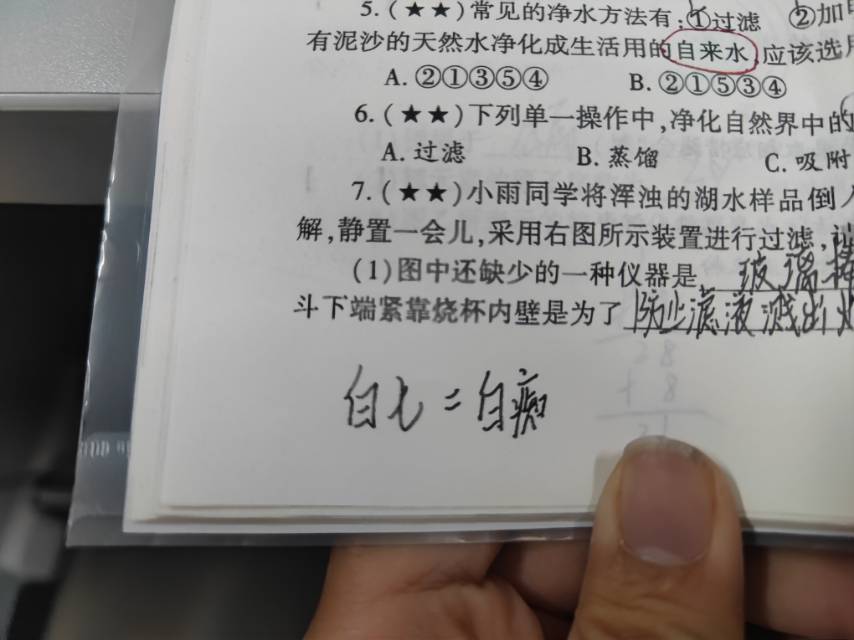 5.(★★)常见的净水方法有:①过滤 ②加
有泥沙的天然水净化成生活用的自来水,应该选用
A.②①③⑤④ B.②①⑤③④
6.(★★)下列单一操作中,净化自然界中的
A.过滤 B.蒸馏 C.吸附
7.(★★)小雨同学将浑浊的湖水样品倒入
解,静置一会儿,采用右图所示装置进行过滤,
(1)图中还缺少的一种仪器是 玻璃棒
斗下端紧靠烧杯内壁是为了 防止滤液溅出
白七=白痴
28
+8